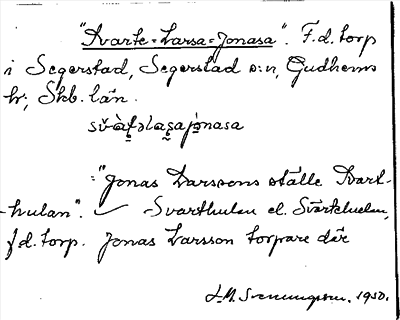 "Svarte-Larsa-Jonasa". F.d. torp
i Segerstad, Segerstad s:n, Gudhems
hr; Skb. län.
="Jonas Larssons ställe Svart-
-hulan". Svarthulan el. Svärtehulan,
f.d. torp. Jonas Larsson torpare där
1950.